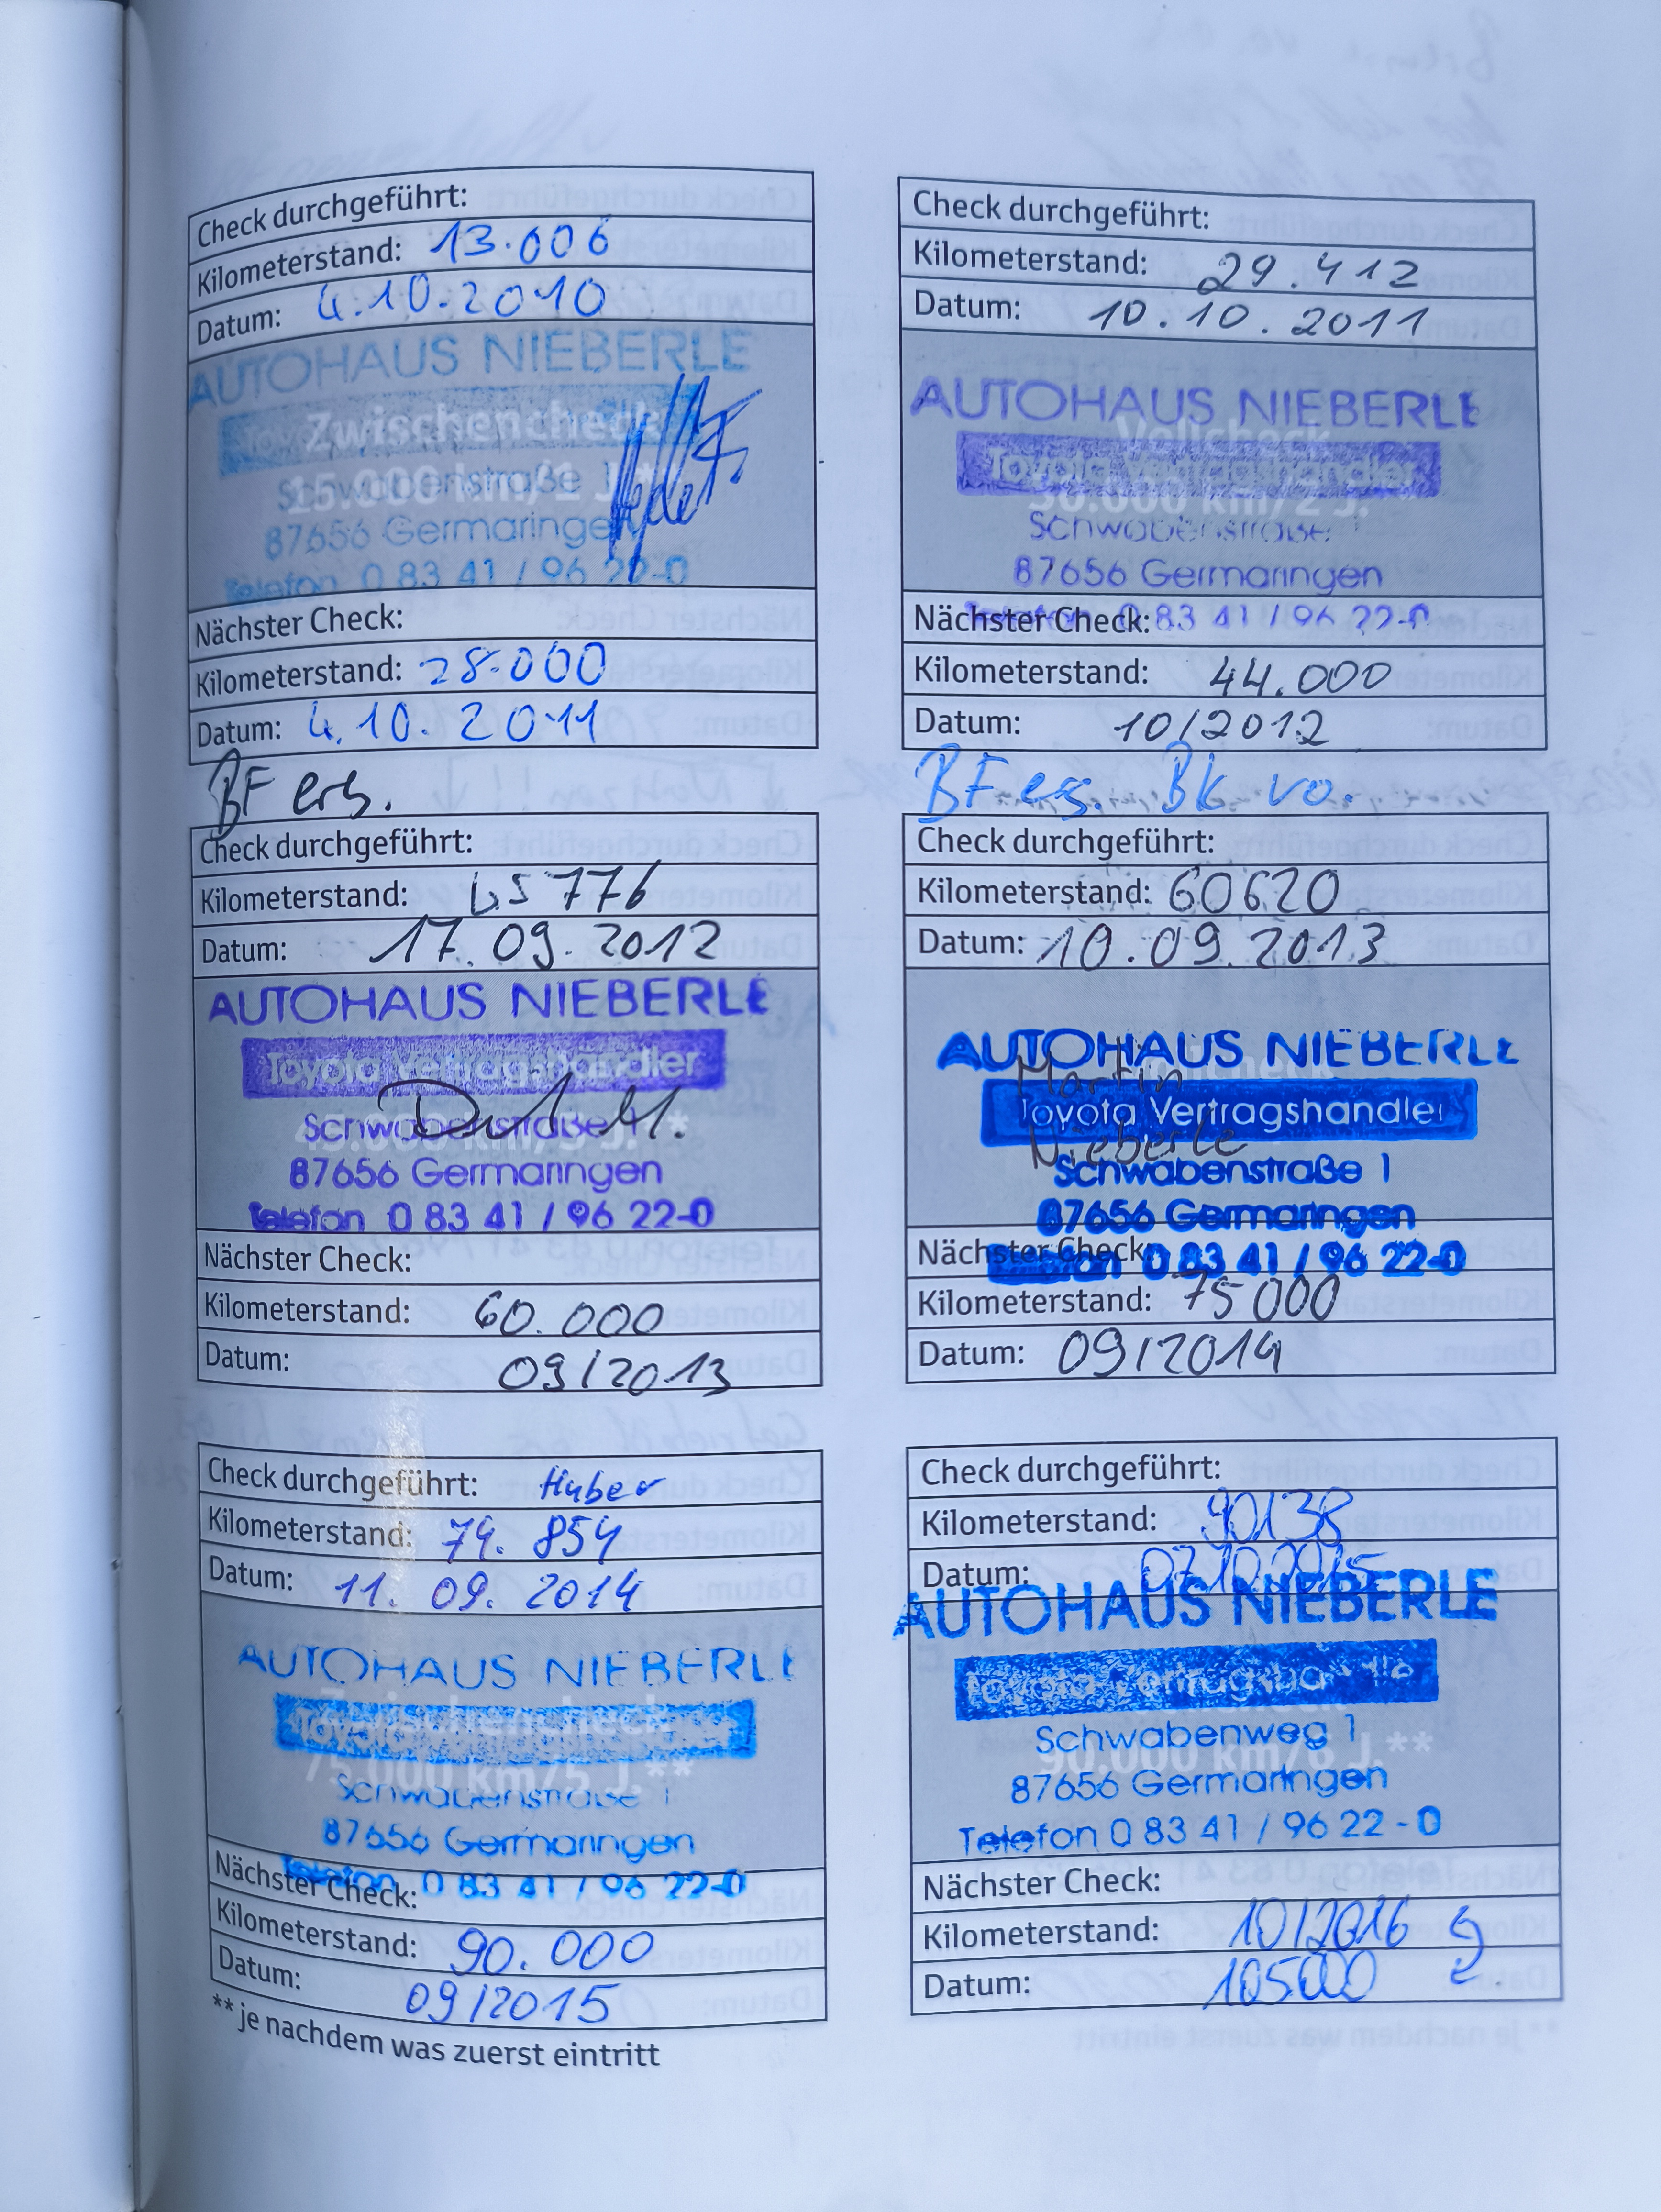 Check durchgeführt:
Kilometerstand: 13.006
Datum: 4.10.2010
AUTOHAUS NIEBERLE
Zwischencheck
15.000 km/1 J.**
87656 Germaringen
Telefon 0 83 41 / 96 22-0
Nächster Check:
Kilometerstand: 28.000
Datum: 4.10.2011
Check durchgeführt:
Kilometerstand: 29.412
Datum: 10.10.2011
AUTOHAUS NIEBERLE
Vollcheck
Toyota Vertragshändler
Schwabenstraße
87656 Germaringen
Telefon 0 83 41 / 96 22-0
Nächster Check:
Kilometerstand: 44.000
Datum: 10/2012
BF ers.
Check durchgeführt:
Kilometerstand: 45 776
Datum: 17.09.2012
AUTOHAUS NIEBERLE
Toyota Vertragshändler
Schwabenstraße 1
87656 Germaringen
Telefon 0 83 41 / 96 22-0
Nächster Check:
Kilometerstand: 60.000
Datum: 09/2013
BF ers. Bk vo.
Check durchgeführt:
Kilometerstand: 60620
Datum: 10.09.2013
AUTOHAUS NIEBERLE
Martin
Toyota Vertragshändler
Nieberle
Schwabenstraße 1
87656 Germaringen
Telefon 0 83 41 / 96 22-0
Nächster Check:
Kilometerstand: 75 000
Datum: 09/2014
Check durchgeführt: Huber
Kilometerstand: 74.854
Datum: 11.09.2014
AUTOHAUS NIEBERLE
Zwischencheck
75.000 km/5 J.**
Schwabenstraße 1
87656 Germaringen
Telefon 0 83 41 / 96 22-0
Nächster Check:
Kilometerstand: 90.000
Datum: 09/2015
** je nachdem was zuerst eintritt
Check durchgeführt:
Kilometerstand: 90138
Datum: 07.10.2015
AUTOHAUS NIEBERLE
Toyota Vertragshändler
Schwabenweg 1
90.000 km/6 J.**
87656 Germaringen
Telefon 0 83 41 / 96 22 - 0
Nächster Check:
Kilometerstand: 10/2016
Datum: 105000